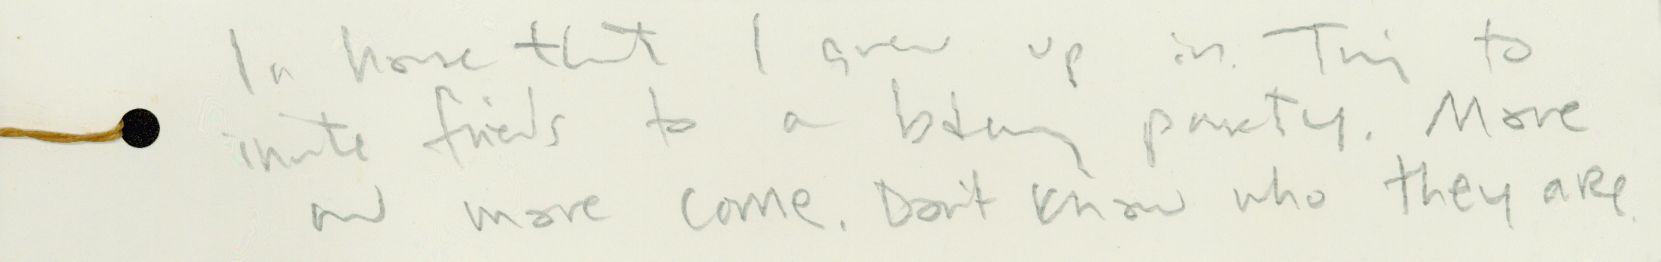 In house that I grew up in. Trying to
invite friends to a bday party. More
and more come. Don't know who they are.